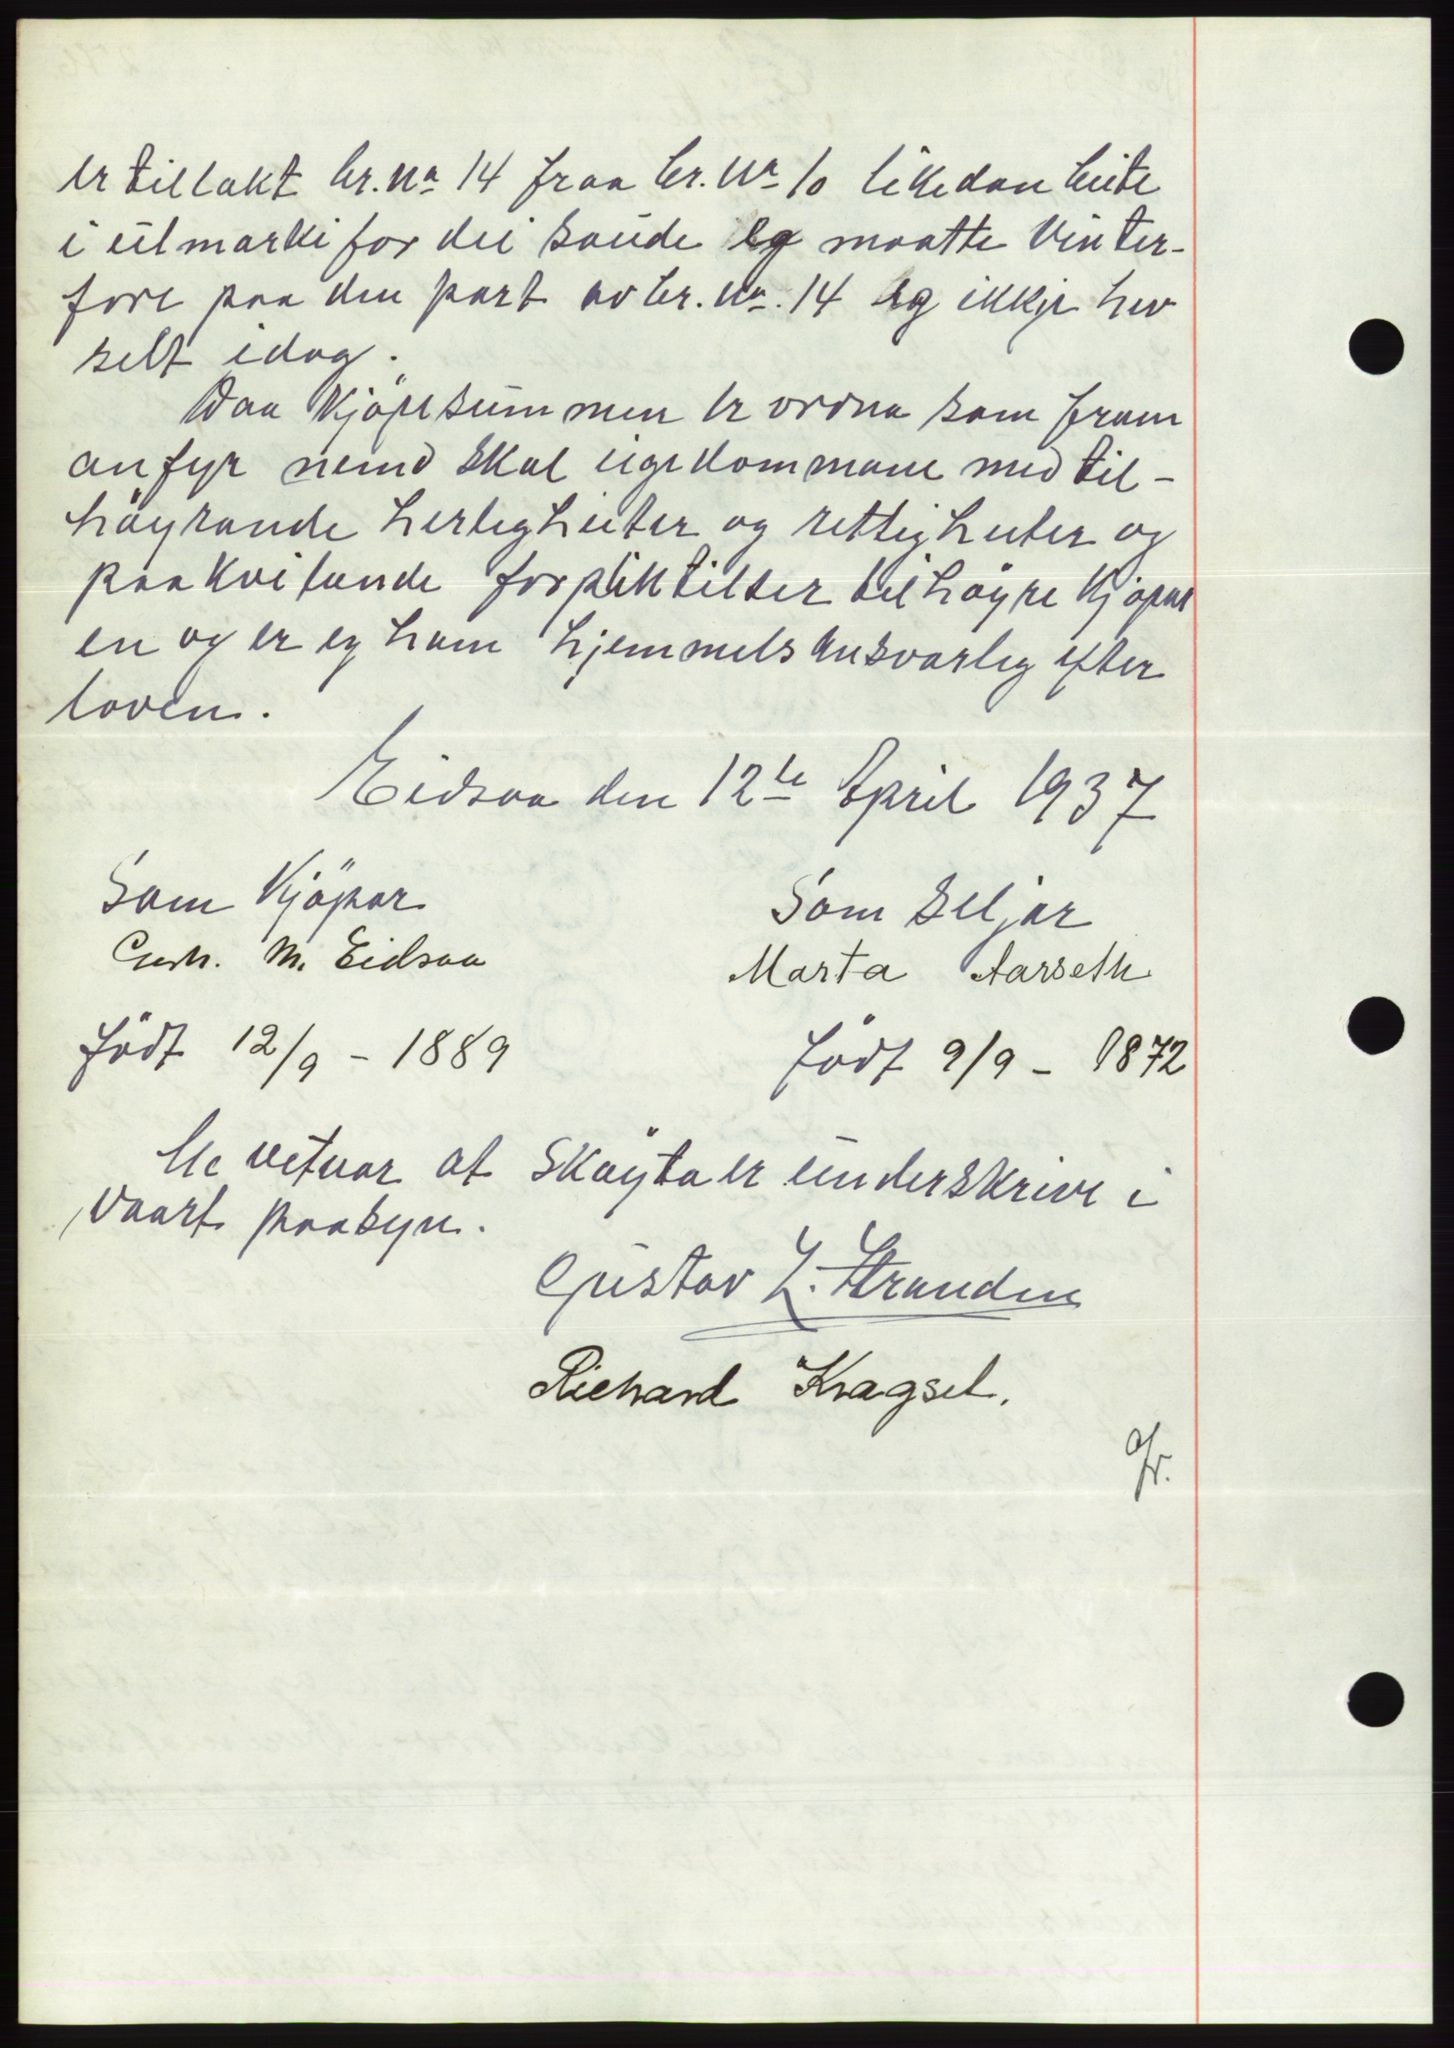 er tillakt br. No 14 fraa br. No 10 likedan beite
i utmarki for dei saude eg maatte vinter-
fore paa den part av br. No. 14 eg ikkje hev
selt idag.
Daa kjöpesummen er ordna som fram
anfyr nemd skal eigedommane med til-
höyrande herlegheiter og rettigheiter og
paakvilande forpliktilser tilhöyre kjöpar
en og er eg ham hjemmelsansvarleg efter
loven.
Eidsaa den 12te April 1937
Som Kjöpar
M. Eidsaa
födt 12/9 - 1889
Som Seljar
Marta Aarseth
födt 9/9 - 1872
Me vitnar at skøyta er underskrive i
vaart paasyn.
Gustav L. Stranden
Richard Kragset.